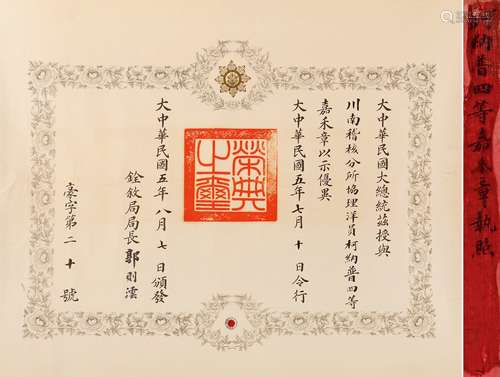 納普四等嘉禾章執照
大中華民國大總統茲授與
川南稽核分所協理洋員柯納普四等
嘉禾章以示優異
大中華民國五年七月十日令行
榮典之璽
大中華民國五年八月七日頒發
銓敘局局長郭則澐
臺字第二十號